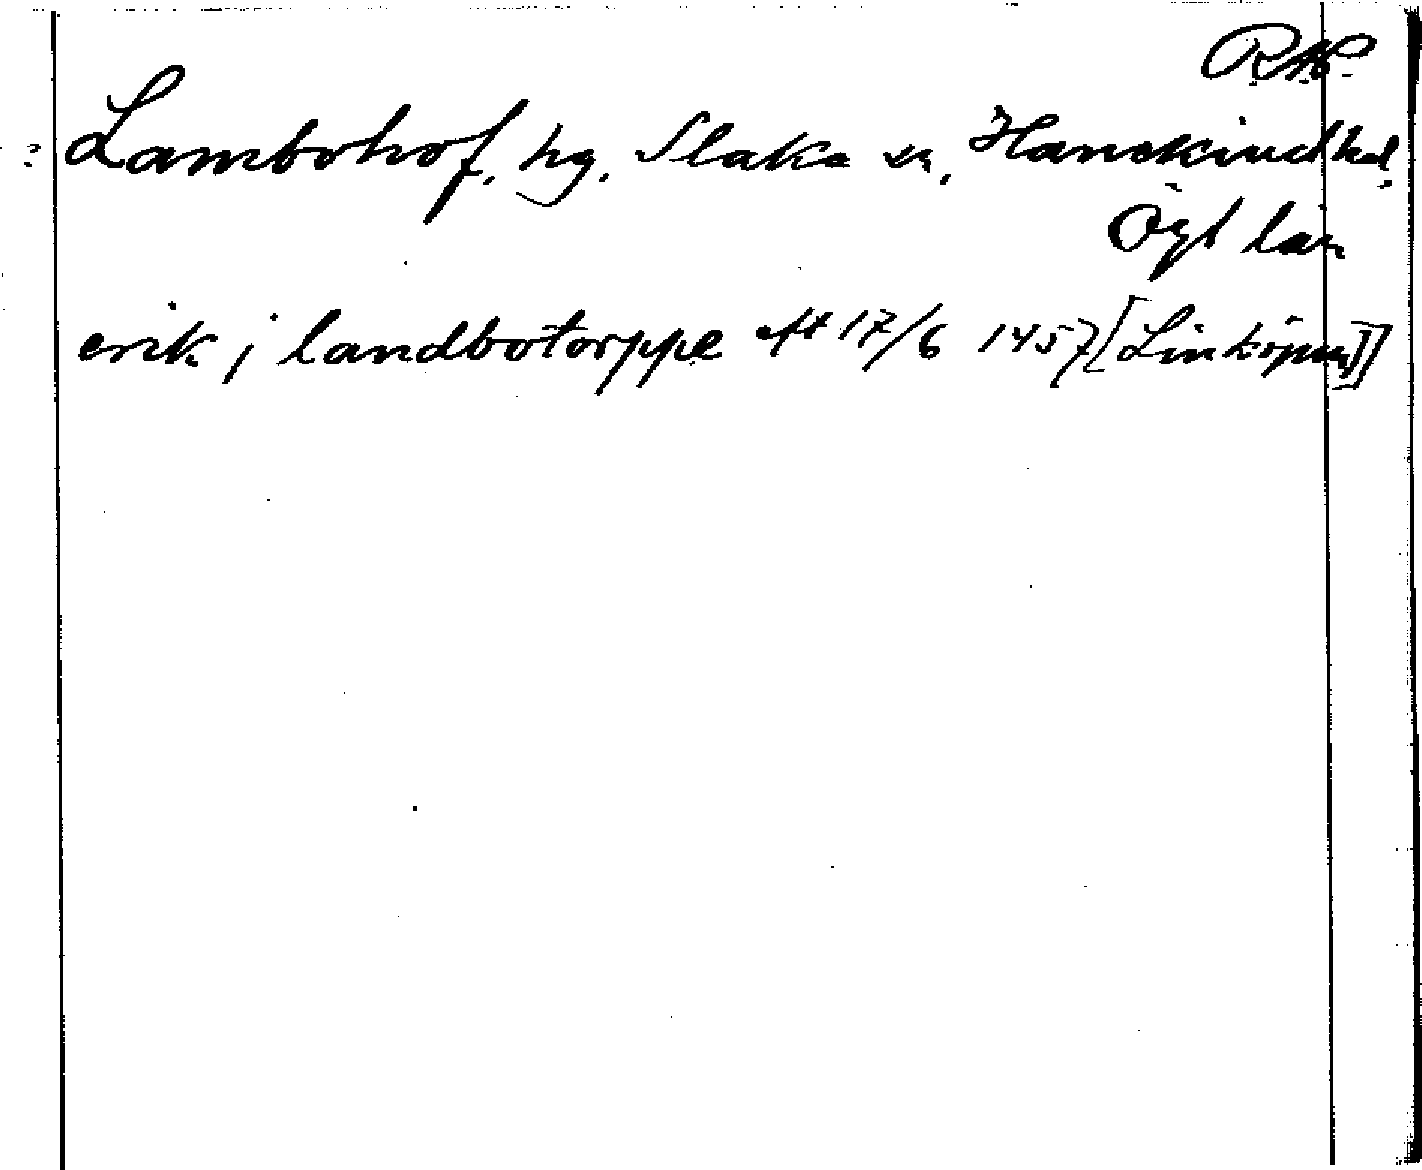 RAP
? Lambohof, hg. Slaka sn, Hanekinds hd,
Ögl län
erik j landbotorppe aft 17/6 1457 [Linköping]]